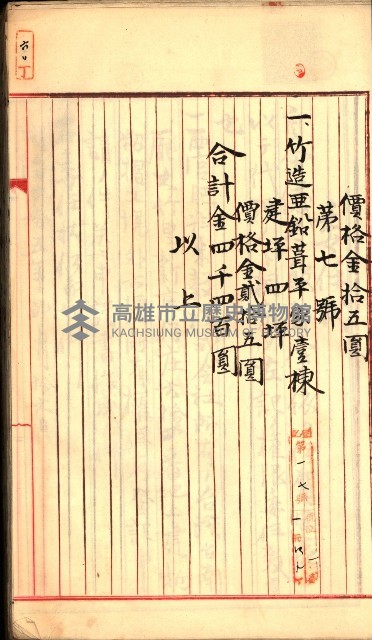 價格金拾五圓
第七號
一、竹造亜鉛葺平家壹棟
建坪四坪
價格金貳拾五圓
合計金四千四百圓
以上
高雄市立歷史博物館
KAOHSIUNG MUSEUM OF HISTORY
六百丁
第一七